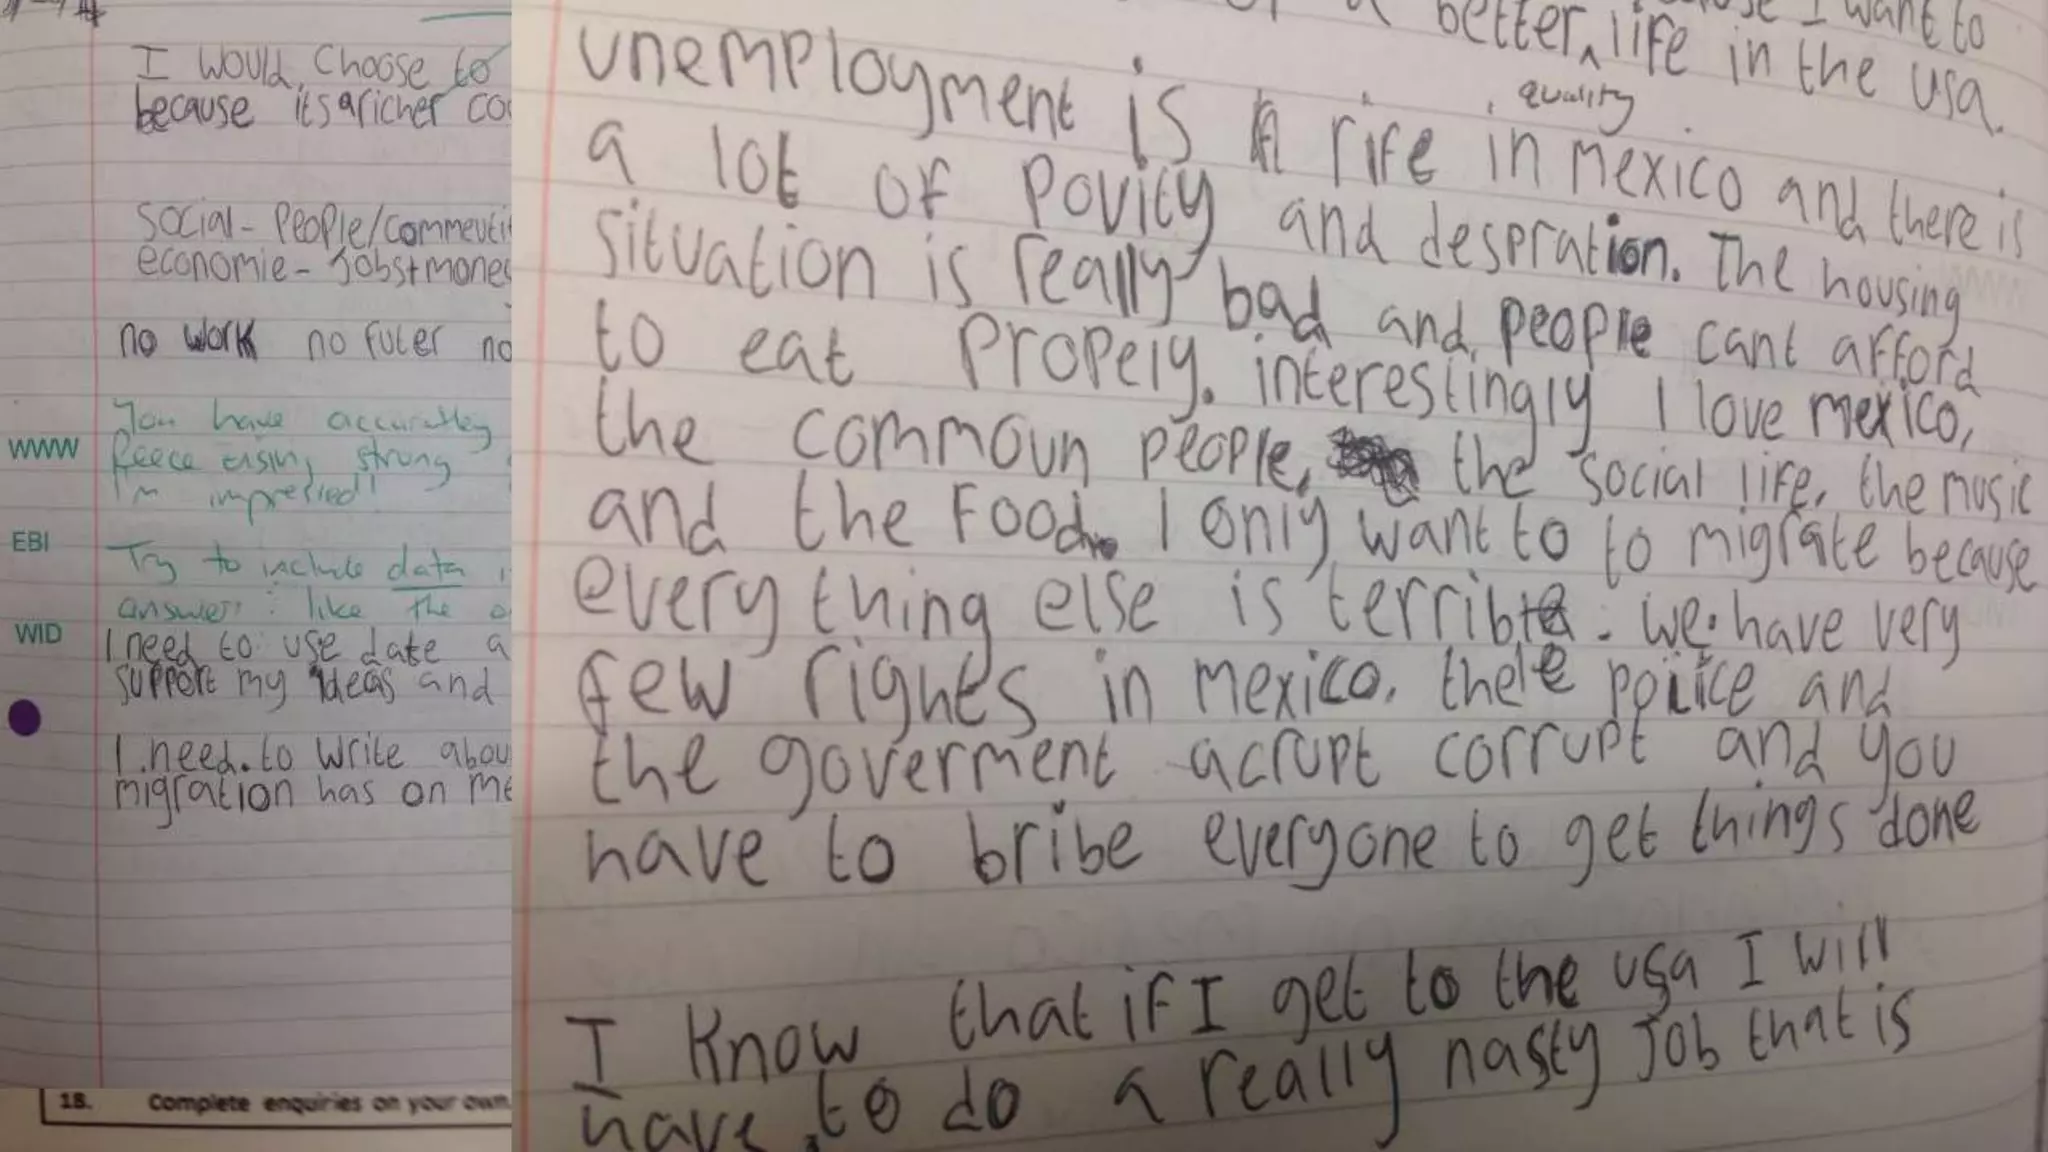 I would choose to
because its a richer co
social - people/commeuti
economie - Jobs + mone
no work no futer no
You have accurately
WWW
strong
I'm impressed!!
EBI
Try to include data
answer: like the o
WID
I need to use date a
support my ideas and
I need to write abou
migration has on me
18. Complete enquiries on your own
I want to
better life in the usa.
quality
unemployment is rife in mexico and there is
a lot of povity and despration. The housing
situation is really bad and people cant afford
to eat propely. interestingly I love mexico,
the commoun people, the social life, the music
and the food. I only want to to migrate because
everything else is terrible. we have very
few rights in mexico. there police and
the goverment acrupt corrupt and you
have to bribe everyone to get things done
I know that if I get to the usa I will
have to do a really nasty job that is